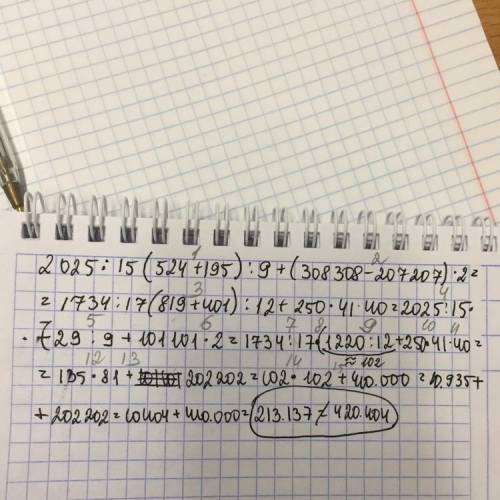 1 2
2025:15(524+195):9+(308308-207207)·2=
3 4
=1734:17(819+401):12+250·41·40=2025:15·
5 6 7 8 9 10 11
·729:9+101101·2=1734:17·(1220:12+250·41·40=
≈102
12 13 14 15
=135·81+202202=102·102+410.000=10.935+
+202202=10404+410.000=213.137≠420.404